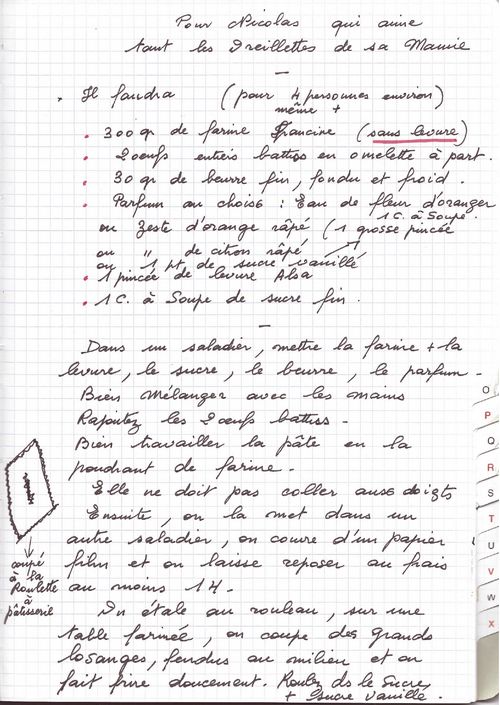 Pour Nicolas qui aime
tant les Oreillettes de sa Mamie
—
. Il faudra (pour 4 personnes environ)
même +
. 300 gr de farine Francine (sans levure)
. 2 oeufs entiers battus en omelette à part.
. 30 gr de beurre fin, fondu et froid.
. Parfum au choix : Eau de fleur d'oranger
1 C. à Soupe
ou Zeste d'orange râpé (1 grosse pincée
ou " de citron râpé
ou 1 pt de sucre vanillé
. 1 pincée de levure Alsa
. 1 C. à Soupe de sucre fin.
—
Dans un saladier, mettre la farine + la
levure, le sucre, le beurre, le parfum -
Bien mélanger avec les mains
Rajoutez les 2 oeufs battus -
Bien travailler la pâte en la
poudrant de farine -
Elle ne doit pas coller aux doigts
Ensuite, on la met dans un
autre saladier, on couvre d'un papier
film et on laisse reposer au frais
au moins 1 H.
coupé
à la
Roulette
à
pâtisserie
On étale au rouleau, sur une
table farinée, on coupe des grands
losanges, fendus au milieu et on
fait frire doucement. Roulez ds le Sucre
+ sucre vanillé.
O
P
Q
R
S
T
U
V
W
X